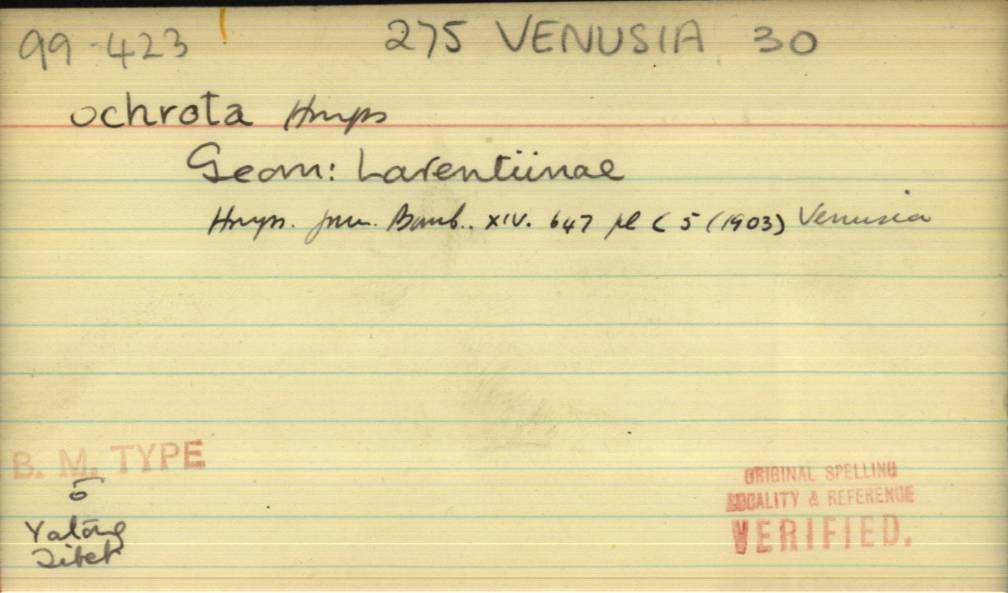 99-423 275 VENUSIA 30
ochrota Hmps
Geom: Larentiinae
Hmps. Jnl. Bomb.. XIV. 647 pl C 5 (1903) Venusia
B. M. TYPE
Yatong
Tibet
ORIGINAL SPELLING
LOCALITY & REFERENCE
VERIFIED.